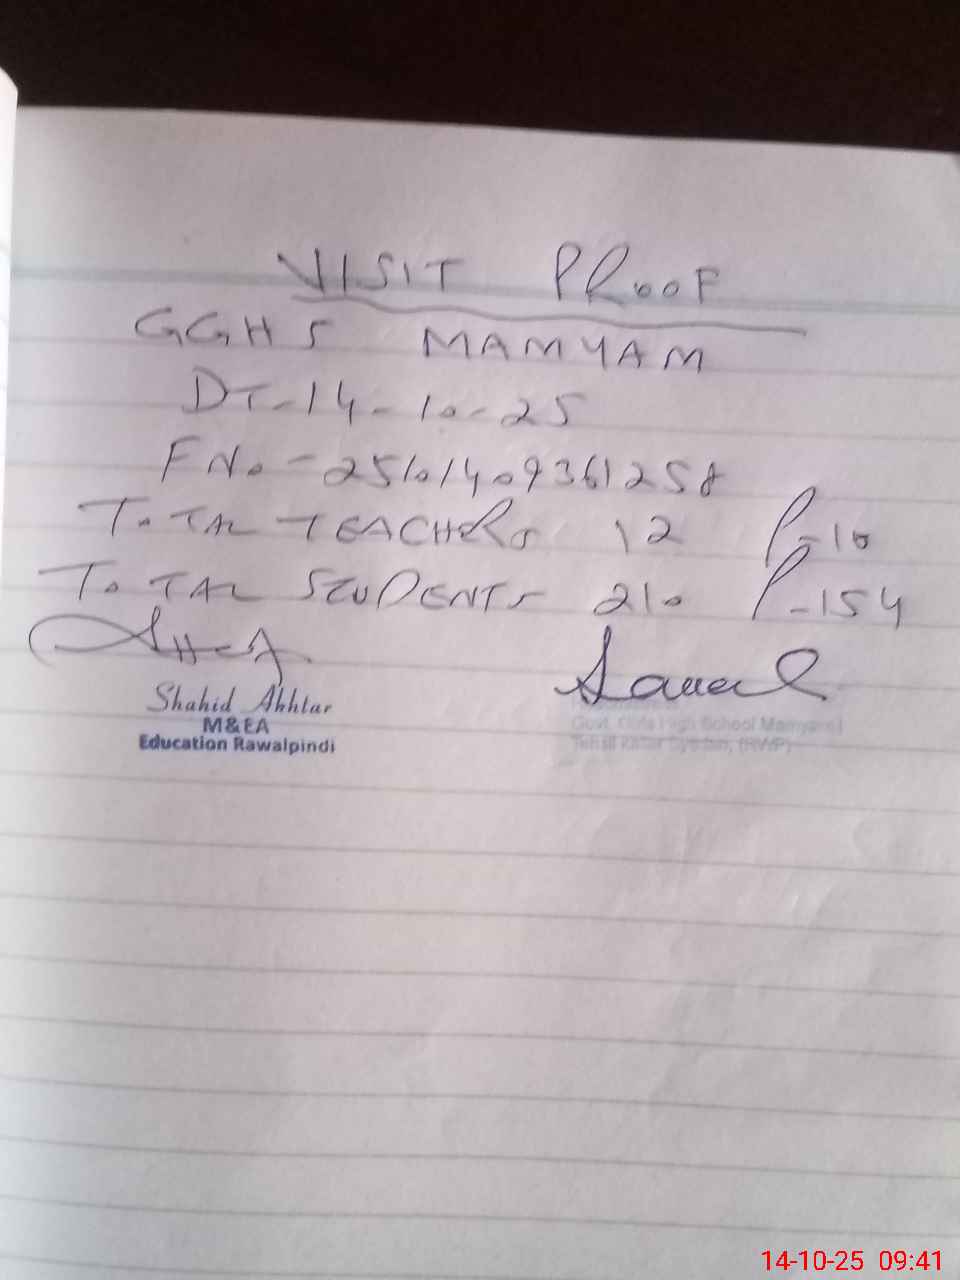 VISIT PRooF
GGHS MAMYAM
DT-14-10-25
F No - 25101409361258
ToTAL TEACHERS 12 P-10
ToTAL STUDENTS 210 P-154
Shahid Akhtar
M&EA
Education Rawalpindi
Govt. Girls High School Mamyam
Tehsil Kallar Syedan, (RWP)
14-10-25 09:41